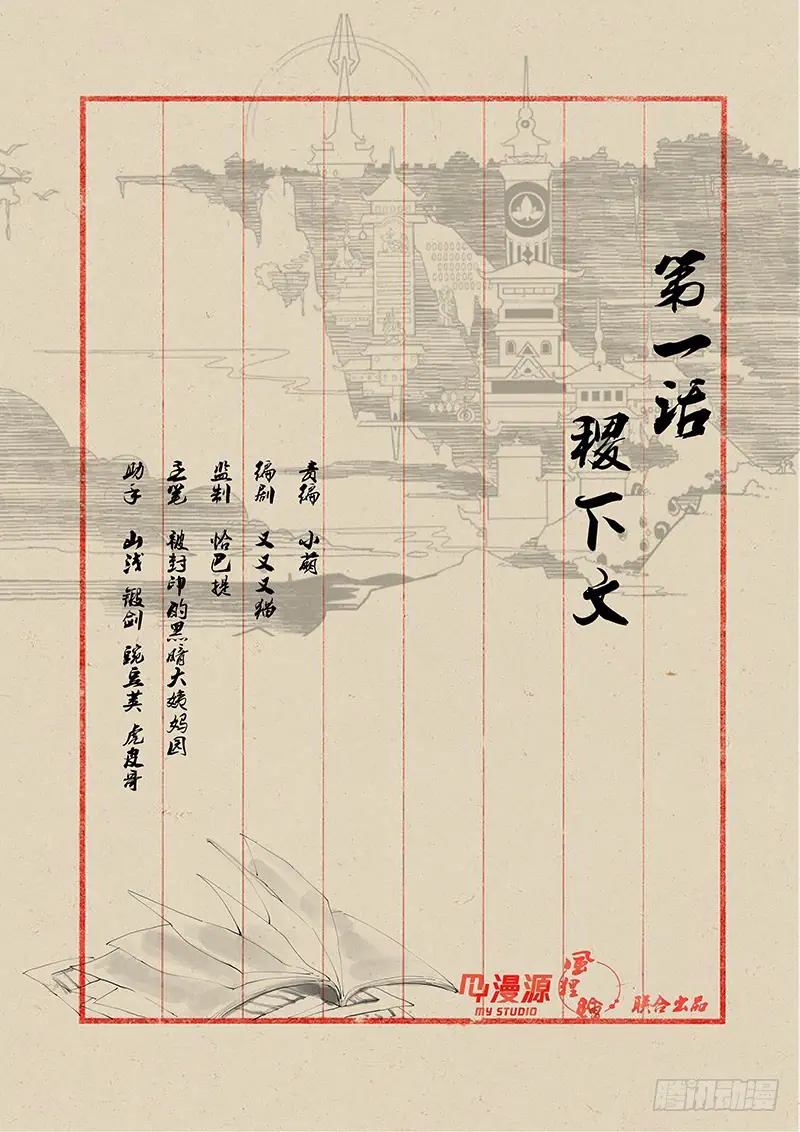 第一话
稷下文
责编 小萌
编剧 又又又猫
监制 恰巴提
主笔 被封印的黑暗大姨妈园
助手 山浅 锻剑 豌豆荚 虎皮哥
漫源
MY STUDIO
風狸
联合出品
腾讯动漫